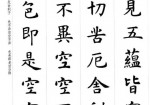 見五蘊皆
切苦厄舍
不異空空
色即是空